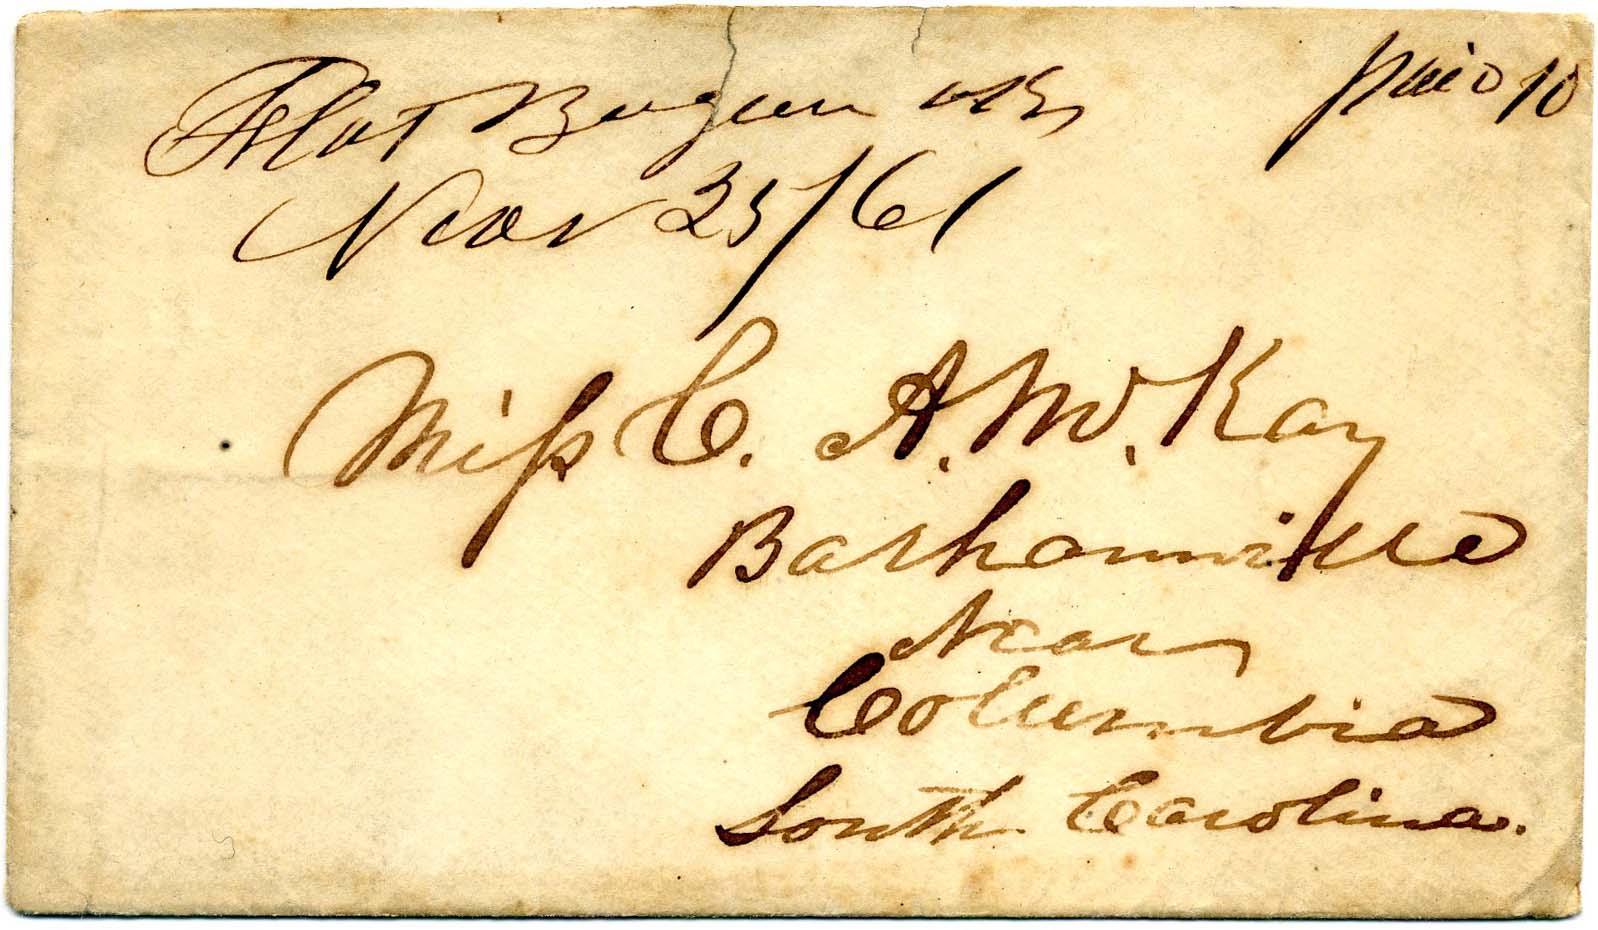 Flat Bayou ark
paid 10
Nov 25/61
Miss C. A. McKay
Barhamville
Near
Columbia
South Carolina.